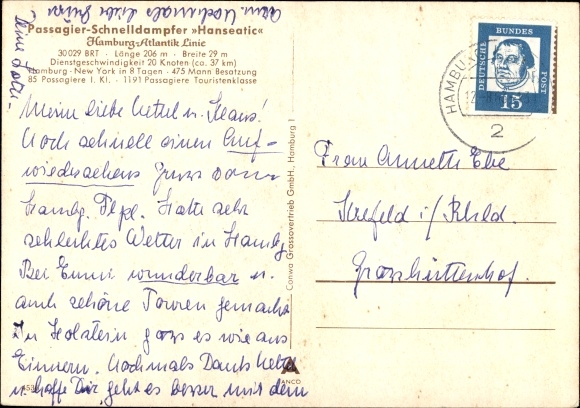 Passagier-Schnelldampfer »Hanseatic«
Hamburg-Atlantik Linie
30 029 BRT · Länge 206 m · Breite 29 m
Dienstgeschwindigkeit 20 Knoten (ca. 37 km)
Hamburg - New York in 8 Tagen · 475 Mann Besatzung
85 Passagiere I. Kl. · 1191 Passagiere Touristenklasse
Meine liebe und Klaus!
Noch schnell einen Auf-
wiedersehens Gruss vom
Hambg. Flpl. Hatte sehr
schlechtes Wetter in Hambg
Bei Emmi wunderbar u.
auch schöne Touren gemacht
In Holstein goss es wie aus
Eimern. Nochmals Dank
u. hoffe Dir geht es besser mit dem
Nochmals liebe
Deine
Conwa Grossovertrieb GmbH., Hamburg 1
ANCO
DEUTSCHE BUNDES POST
15
HAMBURG
2
Frau Annette Ebe
Krefeld i/Rhld.